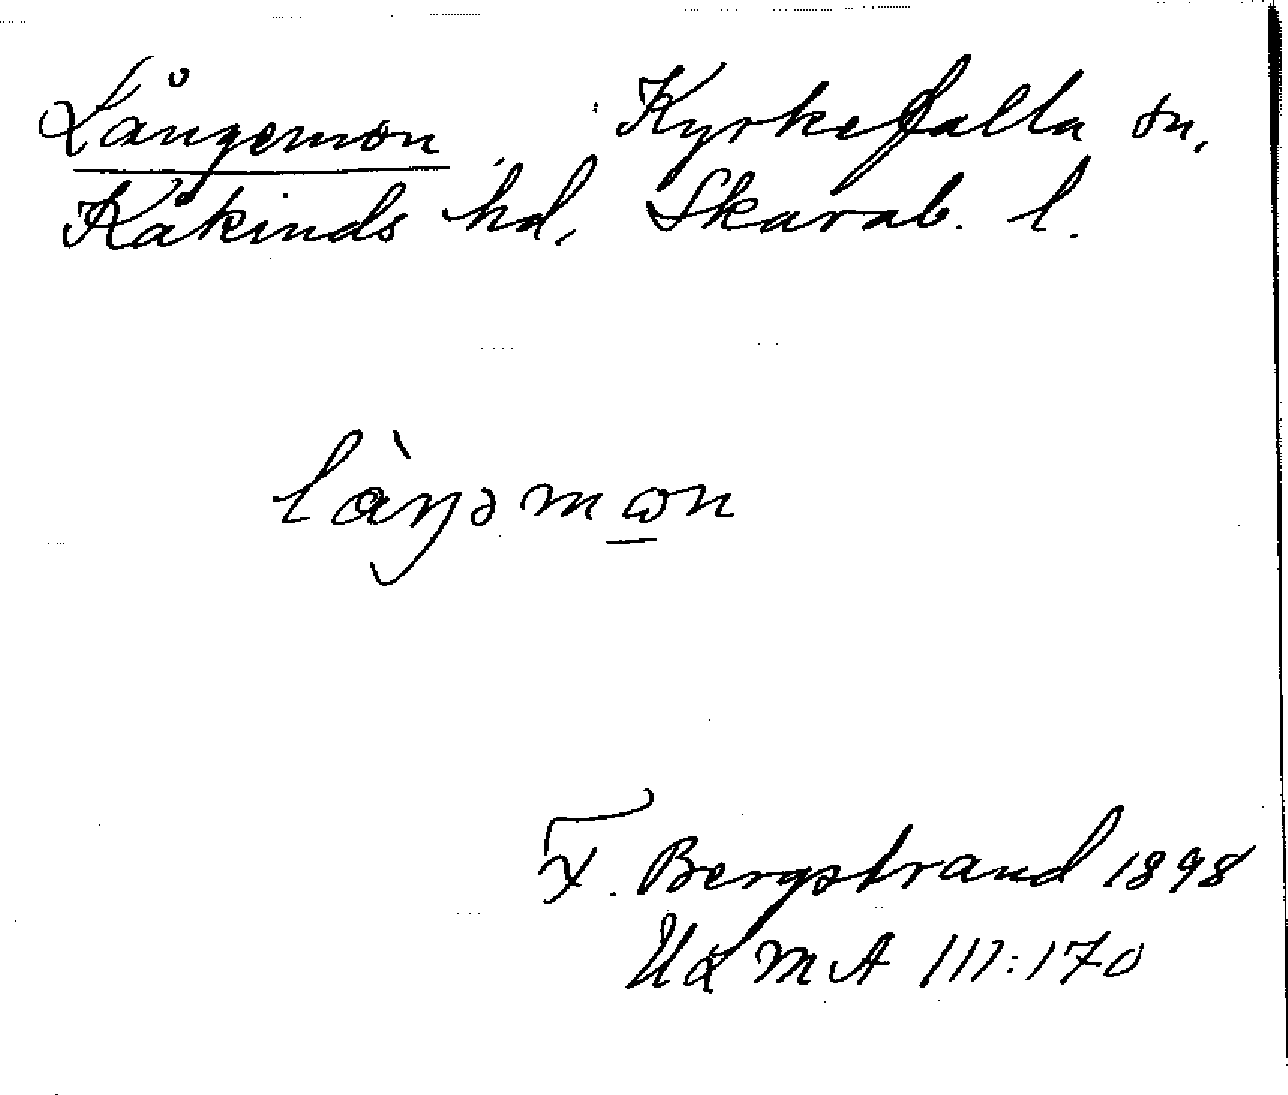 Långemon Kyrkefalla sn,
Kåkinds hd, Skarab. l.
làŋəmɷn
F. Bergstrand 1898
ULMA 111:170